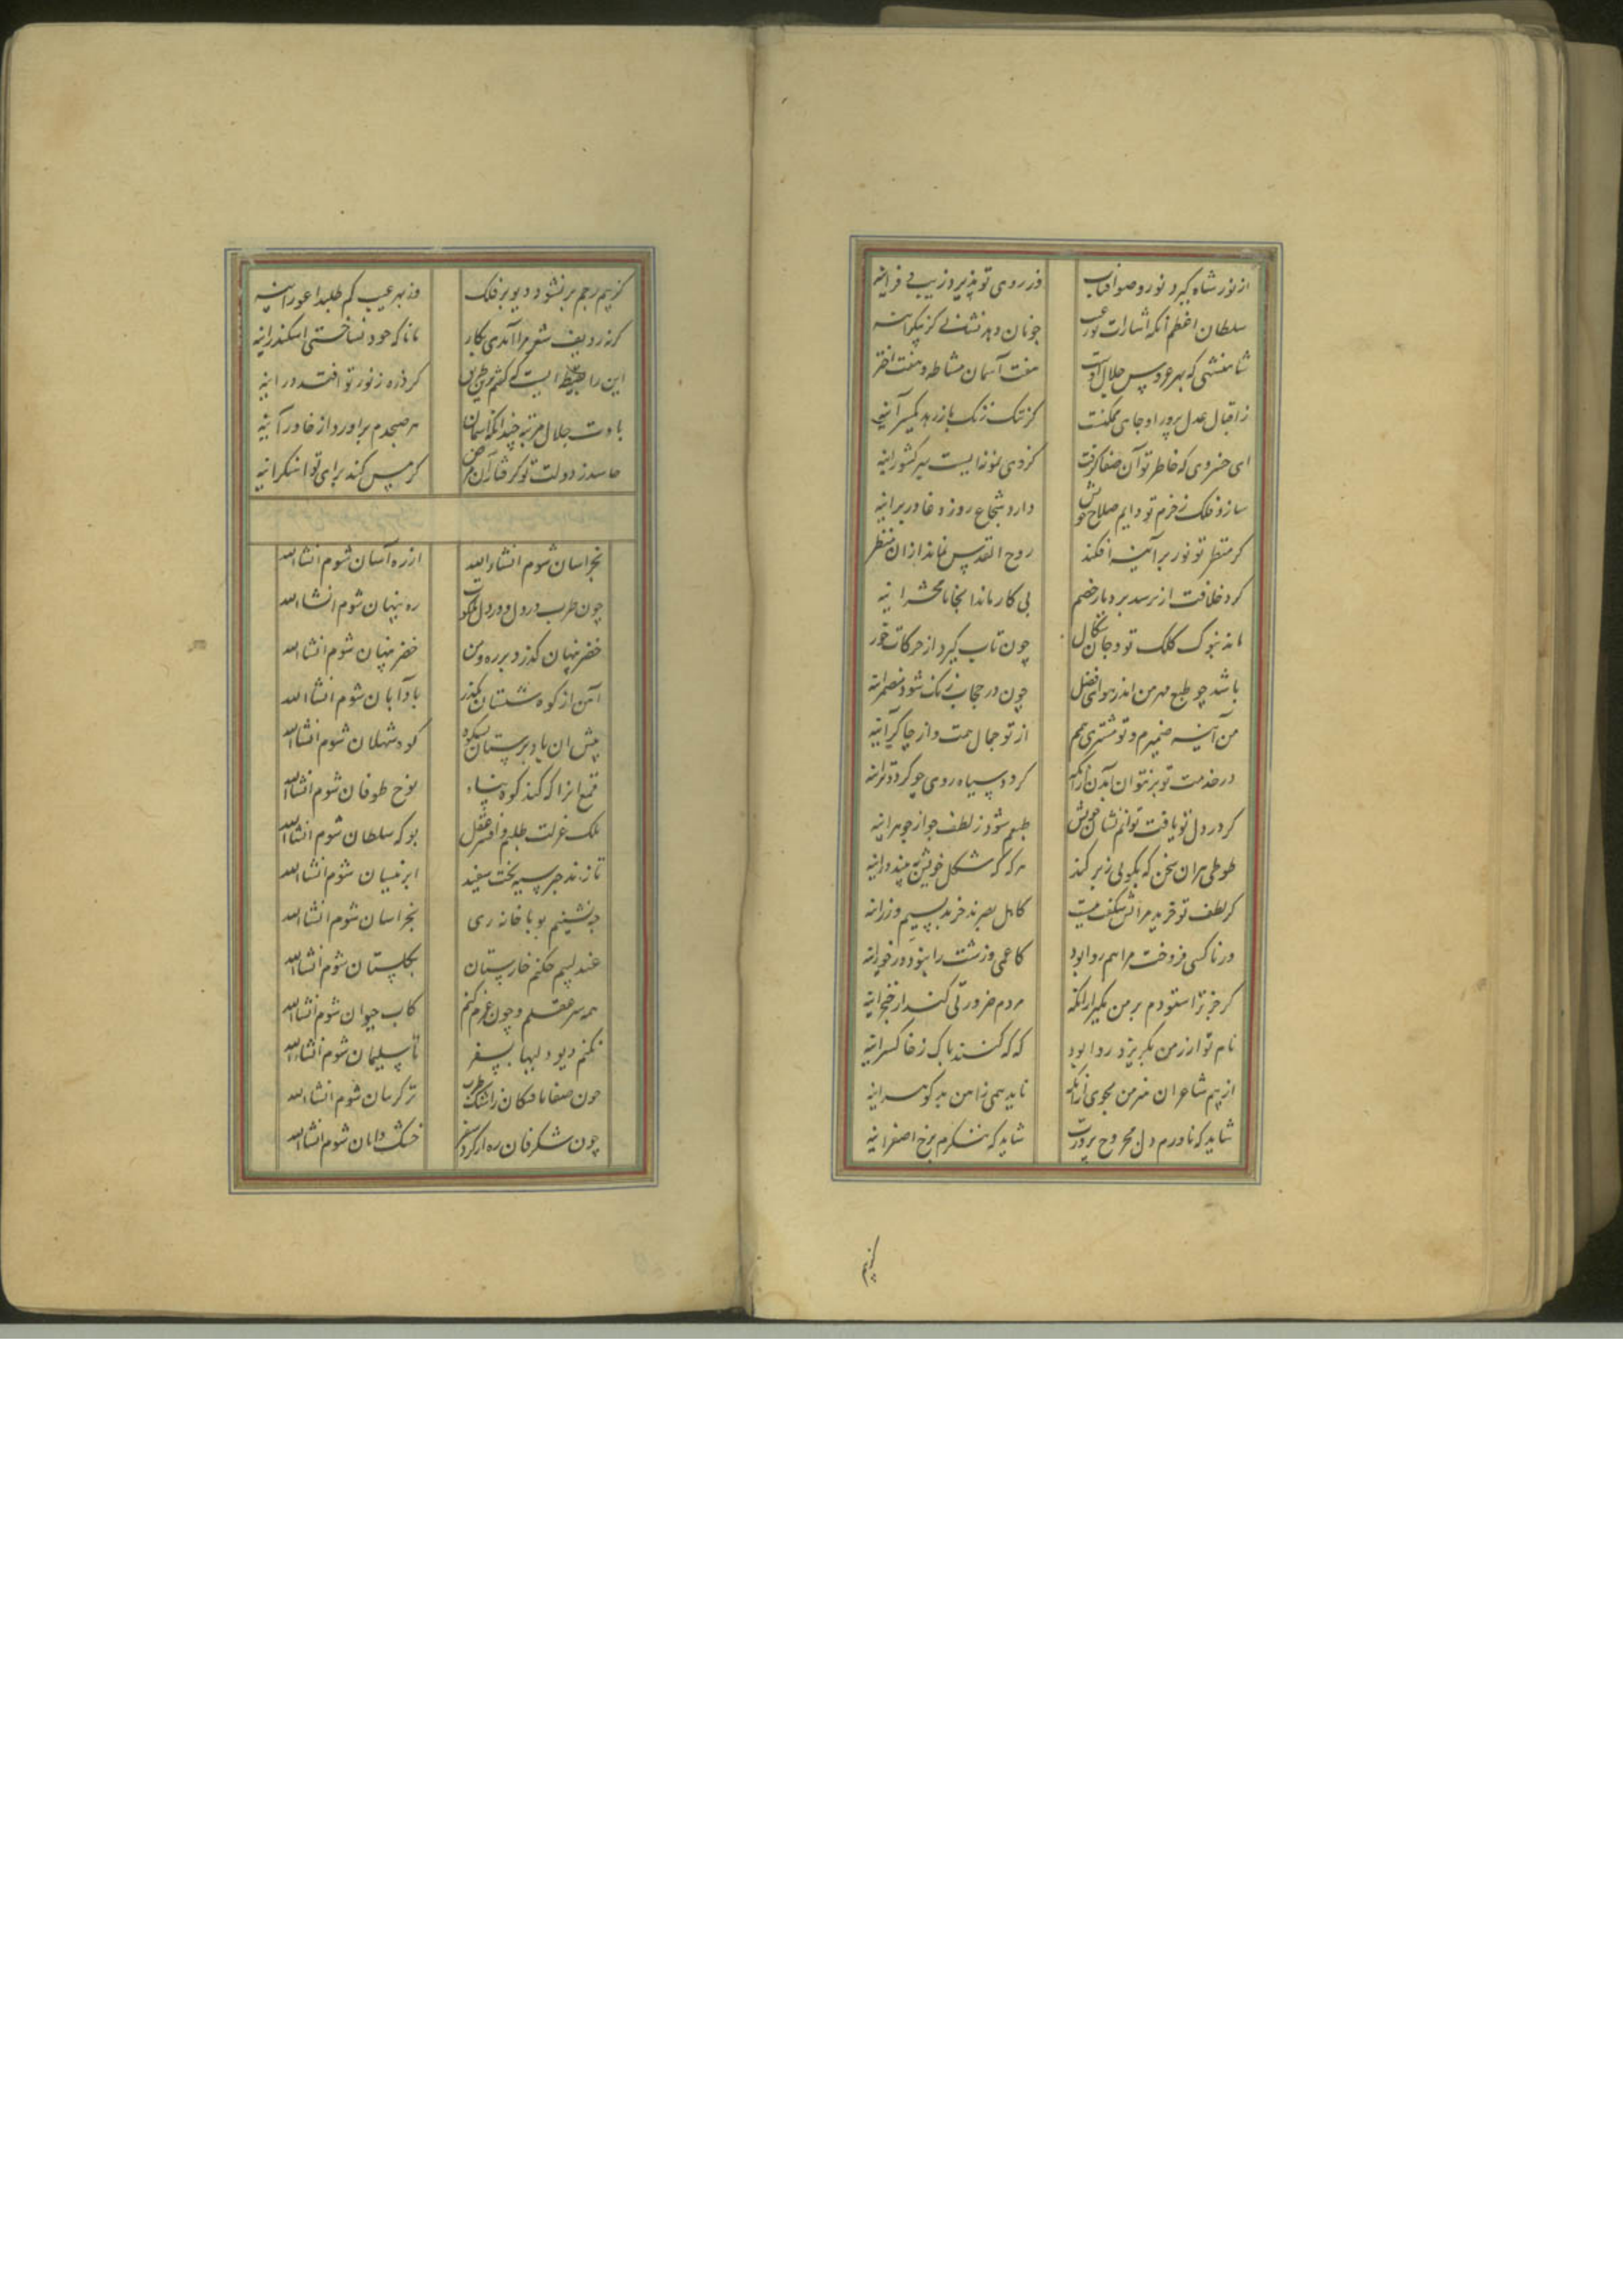 از نور شاه گیرد نور و صفا آفتاب وز روی تو پذیرد زیب و فر آینه
سلطان اعظم آنکه اشارات چونان دهد نشانی کز پیکر آینه
شاهنشهی که بهر عروس جلال اوست هفت آسمان مشاطه و هفت اختر
ز اقبال عدل پرور او جای ممکنست کز ننک زنک باز رهد یکسر آینه
ای خسروی که خاطر تو آن صفا گرفت کز وی نمونه ایست بهر کشور آینه
سازد فلک ز حزم تو دایم صلاح خویش دارد شجاع روز وغا در بر آینه
کر منظر تو نور بر آینه افکند روح القدس نماید از ان منظر
کرد خلافت ار برسد بر دیار خصم بی کار ماند آنجا تا محشر آینه
ماند بنوک کلک تو و جان چون تاب گیرد از حرکات خور
باشد چو طبع مهر من اندر هوای فضل چون در حجاب زنک شود مضمر آینه
من آینه ضمیرم و تو مشتری هم از تو جمال همت و از چاکر آینه
در خدمت تو بر نتوان آمدن زانکه کردد سیاه روی چو کردد تر آینه
کر در دل تو یافت توانم نشان خویش طبعم شود ز لطف چو از جوهر آینه
طوطی هر ان سخن که بکویی ز بر کند هر که که شکل خویش ببیند در آینه
کر لطف تو خرید مرا بس شکفت نیست کاهل بصر خرند بسیم و زر آینه
ور ناکسی فروخت مرا هم روا بود کاعمی و زشت را نبود در خور آینه
کر جز ترا ستودم بر من مکیر از آنکه مردم ضرورتی کند از خنجر آینه
نام تو ار ز من بکریزد روا بود که که کنند پاک ز خاکستر آینه
از بیم شاعران هنر من مجوی زانکه ناید همی ز آهن بد کوهر آینه
شاید که ناورم دل مجروح بر درت شاید که ننکرم برخ اصفر آینه
کز بیم
کز بیم رجم بر نشود دیو بر فلک وز بهر عیب کم طلبد اعور آینه
کر نه ردیف شعر مرا آمدی بکار مانا که خود نساختی اسکندر آینه
این را نقیضه ایست که کفتم بدین طریق کر ذره ز نور تو افتد در آینه
بادت جلال و مرتبه چندانکه آسمان هر صبحدم براورد از خاور آینه
حاسد ز دولت تو کرفتار آن مرض کز مس کند برای تو اهنکر آینه
بخراسان شوم انشاء الله از ره آسان شوم انشاء الله
چون طرب در دل و دل در ملکوت ره پنهان شوم انشاء الله
خضر پنهان کذرد بر ره و من خضر پنهان شوم انشاء الله
باد آبان شوم انشاء الله
پیش ان باد پرستان بشکوه کوه شهلان شوم انشاء الله
قمع انرا که کند کوه پناه نوح طوفان شوم انشاء الله
ملک عزلت طلبم و افسر عقل بو که سلطان شوم انشاء الله
تا زند چتر سیه بخت سفید ابر نیسان شوم انشاء الله
چه نشینم بوبا خانه ری بخراسان شوم انشاء الله
عندلیبم چکنم خارستان بکلستان شوم انشاء الله
همه سر عقلم و چون عزم کنم کاب حیوان شوم انشاء الله
نکنم دیو دلیها بسفر تا سلیمان شوم انشاء الله
شوم انشاء الله
چون شکرفان ره ار کرد سفر خشک دامان شوم انشاء الله